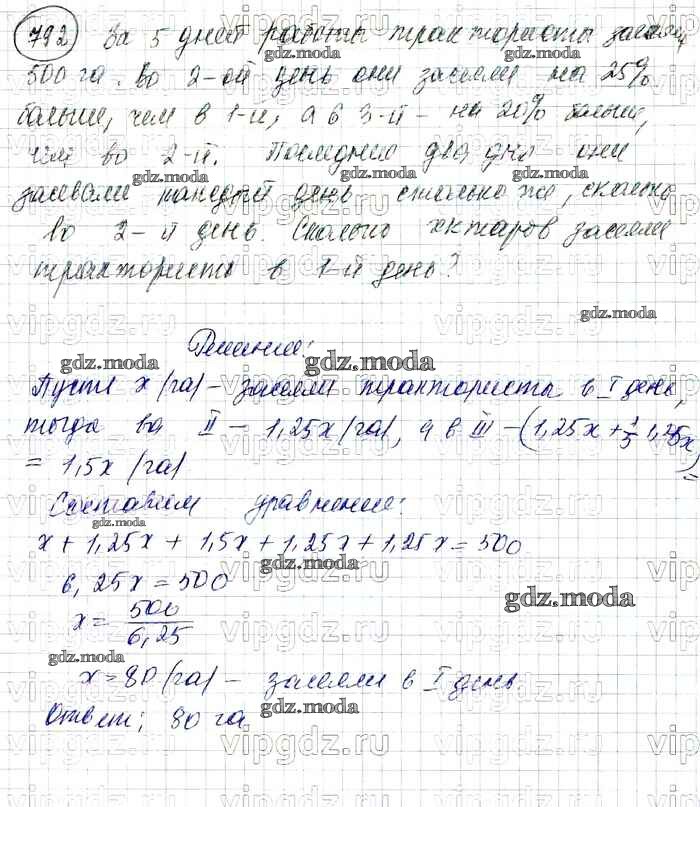 792 За 5 дней работы трактористы засеяли
500 га. Во 2-ой день они засеяли на 25%
больше, чем в 1-й, а в 3-й - на 20% больше,
чем во 2-й. Последние два дня они
засевали каждый день столько же, сколько
во 2-й день. Сколько гектаров засеяли
трактористы в 1-й день?
Решение:
Пусть x (га) - засеяли трактористы в I день,
тогда во II - 1,25x (га), а в III - (1,25x + 1/5 1,25x) =
= 1,5x (га)
Составим уравнение:
x + 1,25x + 1,5x + 1,25x + 1,25x = 500
6,25x = 500
x = 500/6,25
x = 80 (га) - засеяли в I день
Ответ: 80 га
gdz.moda
vipgdz.ru